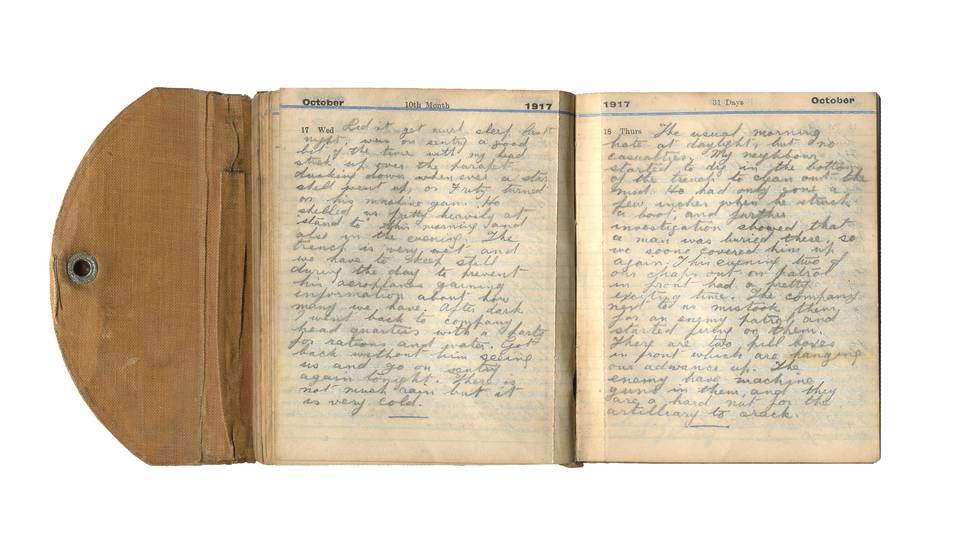 October 10th Month 1917
17 Wed Didn't get much sleep last
night, was on sentry a good
bit of the time with my head
stuck up over the parapet
ducking down whenever a star
shell went up, or Fritz turned
on his machine gun. He
shelled us pretty heavily at
"stand to" this morning and
also in the evening. The
trench is very wet and
we have to keep still
during the day to prevent
his aeroplanes gaining
information about how
many we have. After dark
I went back to company
head quarters with a party
for rations and water. Got
back without him seeing
us and go on sentry
again tonight. There is
not much rain but it
is very cold.
1917 31 Days October
18 Thurs The usual morning
hate at daylight, but no
casualties. My neighbour
started to dig in the bottom
of the trench to clean out the
mud. He had only gone a
few inches when he struck
a boot, and further
investigation showed that
a man was buried there, so
we soon covered him up
again. This evening two of
our chaps out on patrol
in front had a pretty
exciting time. The company
next to us mistook them
for an enemy patrol, and
started firing on them.
There are two pill boxes
in front which are hanging
our advance up. The
enemy have machine
guns in them, and they
are a hard nut for the
artilliary to crack.